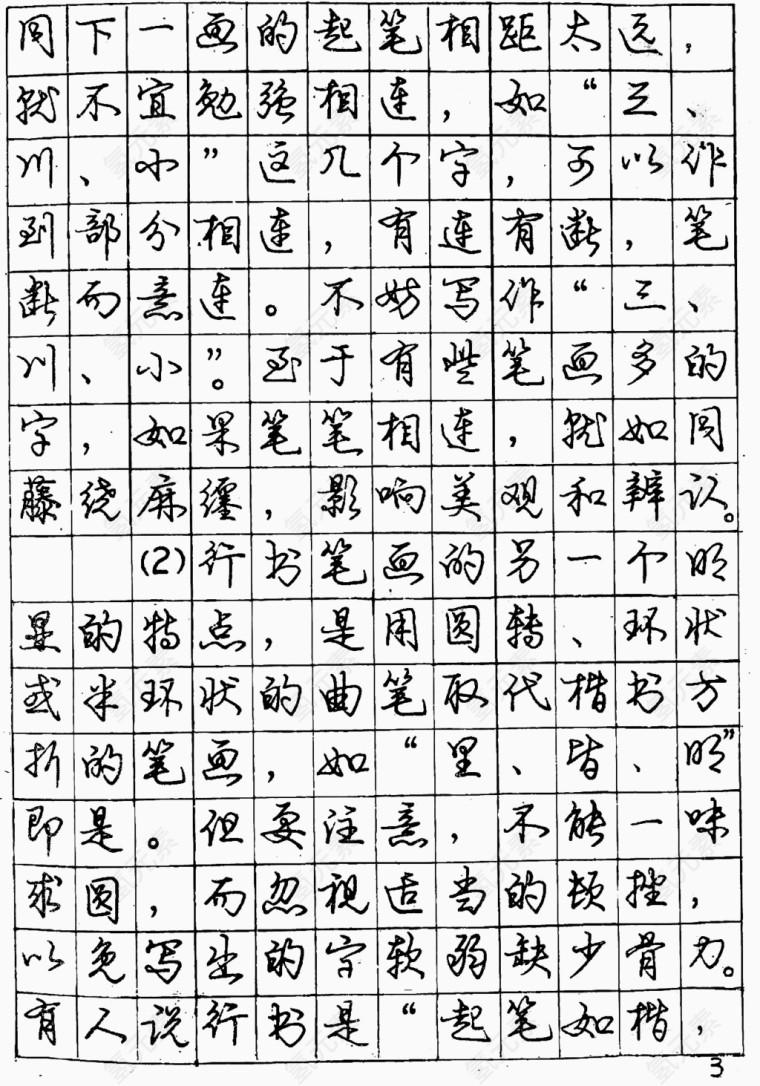 同下一画的起笔相距太远，
就不宜勉强相连，如“三、
川、小”这几个字，可以作
到部分相连，有连有断，笔
断而意连。不妨写作“三、
川、小”。至于有些笔画多的
字，如果笔笔相连，就如同
藤绕麻缠，影响美观和辨认。
(2)行书笔画的另一个明
显的特点，是用圆转、环状
或半环状的曲笔取代楷书方
折的笔画，如“里、皆、明”
即是。但要注意，不能一味
求圆，而忽视适当的顿挫，
以免写出的字软弱缺少骨力。
有人说行书是“起笔如楷，
3
氢元素